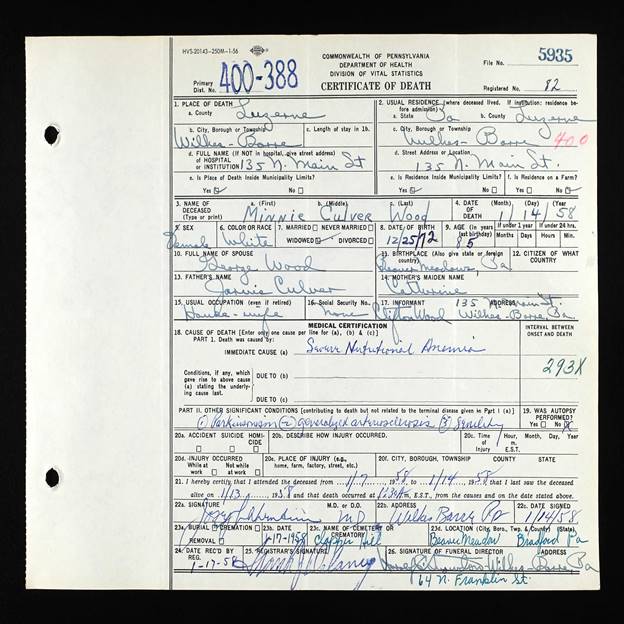 HVS-20143-250M-1-56
COMMONWEALTH OF PENNSYLVANIA
DEPARTMENT OF HEALTH
DIVISION OF VITAL STATISTICS
CERTIFICATE OF DEATH
File No. 5935
Primary Dist. No. 400-388
Registered No. 82
1. PLACE OF DEATH
a. County Luzerne
2. USUAL RESIDENCE (where deceased lived. If institution: residence before admission)
a. State Pa b. County Luzerne
b. City, Borough or Township
Wilkes-Barre
c. Length of stay in 1b.
c. City, Borough or Township
Wilkes-Barre
400
d. FULL NAME (If NOT in hospital, give street address) OF HOSPITAL OR INSTITUTION 135 N. Main St
d. Street Address or Location
135 N. Main St.
e. Is Place of Death Inside Municipality Limits?
Yes No
e. Is Residence Inside Municipal Limits?
Yes No
f. Is Residence on a Farm?
Yes No
3. NAME OF DECEASED (Type or print)
a. (First) b. (Middle) c. (Last)
Minnie Culver Wood
4. DATE OF DEATH (Month) (Day) (Year)
1 14 58
5. SEX
Female
6. COLOR OR RACE
White
7. MARRIED NEVER MARRIED
WIDOWED DIVORCED
8. DATE OF BIRTH
12/25/72
9. AGE (in years last birthday)
85
If under 1 year
Months Days
If under 24 hrs.
Hours Min.
10. FULL NAME OF SPOUSE
George Wood
11. BIRTHPLACE (Also give state or foreign country)
Beaver Meadows, Pa
12. CITIZEN OF WHAT COUNTRY
13. FATHER'S NAME
Jarvis Culver
14. MOTHER'S MAIDEN NAME
Catherine
15. USUAL OCCUPATION (even if retired)
House-wife
16. Social Security No.
none
17. INFORMANT ADDRESS
135 N. Main St.
Clifton Wood Wilkes-Barre, Pa.
MEDICAL CERTIFICATION
18. CAUSE OF DEATH [Enter only one cause per line for (a), (b) & (c)]
PART 1. Death was caused by:
IMMEDIATE CAUSE (a) Severe Nutritional Anemia
INTERVAL BETWEEN ONSET AND DEATH
293X
Conditions, if any, which gave rise to above cause (a) stating the underlying cause last.
DUE TO (b)
DUE TO (c)
PART II. OTHER SIGNIFICANT CONDITIONS [contributing to death but not related to the terminal disease given in Part I (a)]
(1) Parkinsonism (2) generalized arteriosclerosis (3) Senility
19. WAS AUTOPSY PERFORMED?
YES NO
20a. ACCIDENT SUICIDE HOMICIDE
20b. DESCRIBE HOW INJURY OCCURRED.
20c. Time of Injury Hour, Month, Day, Year
m.
E.S.T.
20d. INJURY OCCURRED
While at work Not while at work
20e. PLACE OF INJURY (e.g., home, farm, factory, street, etc.)
20f. CITY, BOROUGH, TOWNSHIP COUNTY STATE
21. I hereby certify that I attended the deceased from 1/7 1958 to 1/14 1958 that I last saw the deceased
alive on 1/13 1958 and that death occurred at E.S.T., from the causes and on the date stated above.
22a. SIGNATURE M.D. or D.O.
M.D.
22b. ADDRESS
Wilkes Barre Pa
22c. SIGNED
1/14/58
23a. BURIAL CREMATION
REMOVAL
23b. DATE
1-17-1958
23c. NAME OF CEMETERY OR CREMATORY
Clapper Hill
23d. LOCATION (City, Boro, Twp, & County) (State)
Beaver Meadow Bradford Pa
24. DATE REC'D BY REG.
1-17-58
25. REGISTRAR'S SIGNATURE
26. SIGNATURE OF FUNERAL DIRECTOR ADDRESS
Wilkes-Barre, Pa
64 N. Franklin St.